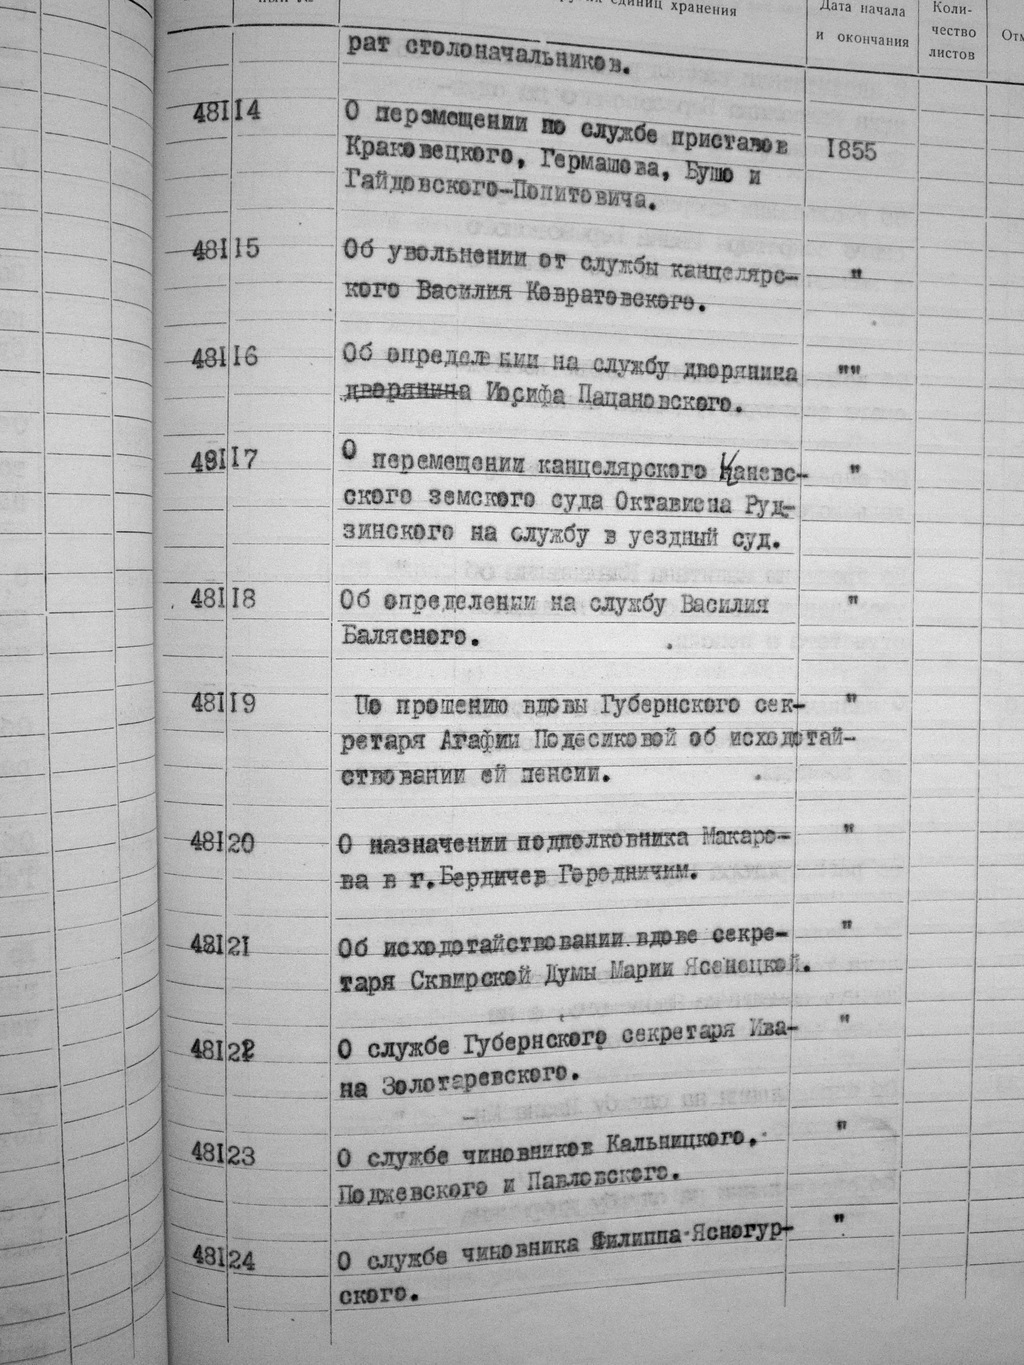 единиц хранения
Дата начала
и окончания
Коли-
чество
листов
рат столоначальников.
48114 О перемещении по службе приставов 1855
Краковецкого, Гермашова, Бушо и
Гайдовского-Попитовича.
48115 Об увольнении от службы канцелярс- "
кого Василия Ковратовского.
48116 Об определении на службу дворянина ""
дворянина Иосифа Пацановского.
48117 О перемещении канцелярского Каневс- "
ского земского суда Октависна Руд-
зинского на службу в уездный суд.
48118 Об определении на службу Василия "
Балясного.
48119 По прошению вдовы Губернского сек- "
ретаря Агафии Подесиковой об исходотай-
ствовании ей пенсии.
48120 О назначении подполковника Макаро- "
ва в г.Бердичев Городничим.
48121 Об исходотайствовании вдове секре- "
таря Сквирской Думы Марии Ясенецкой.
48122 О службе Губернского секретаря Ива- "
на Золотаревского.
48123 О службе чиновников Кальницкого, "
Поджевского и Павловского.
48124 О службе чиновника Филиппа Ясногур- "
ского.